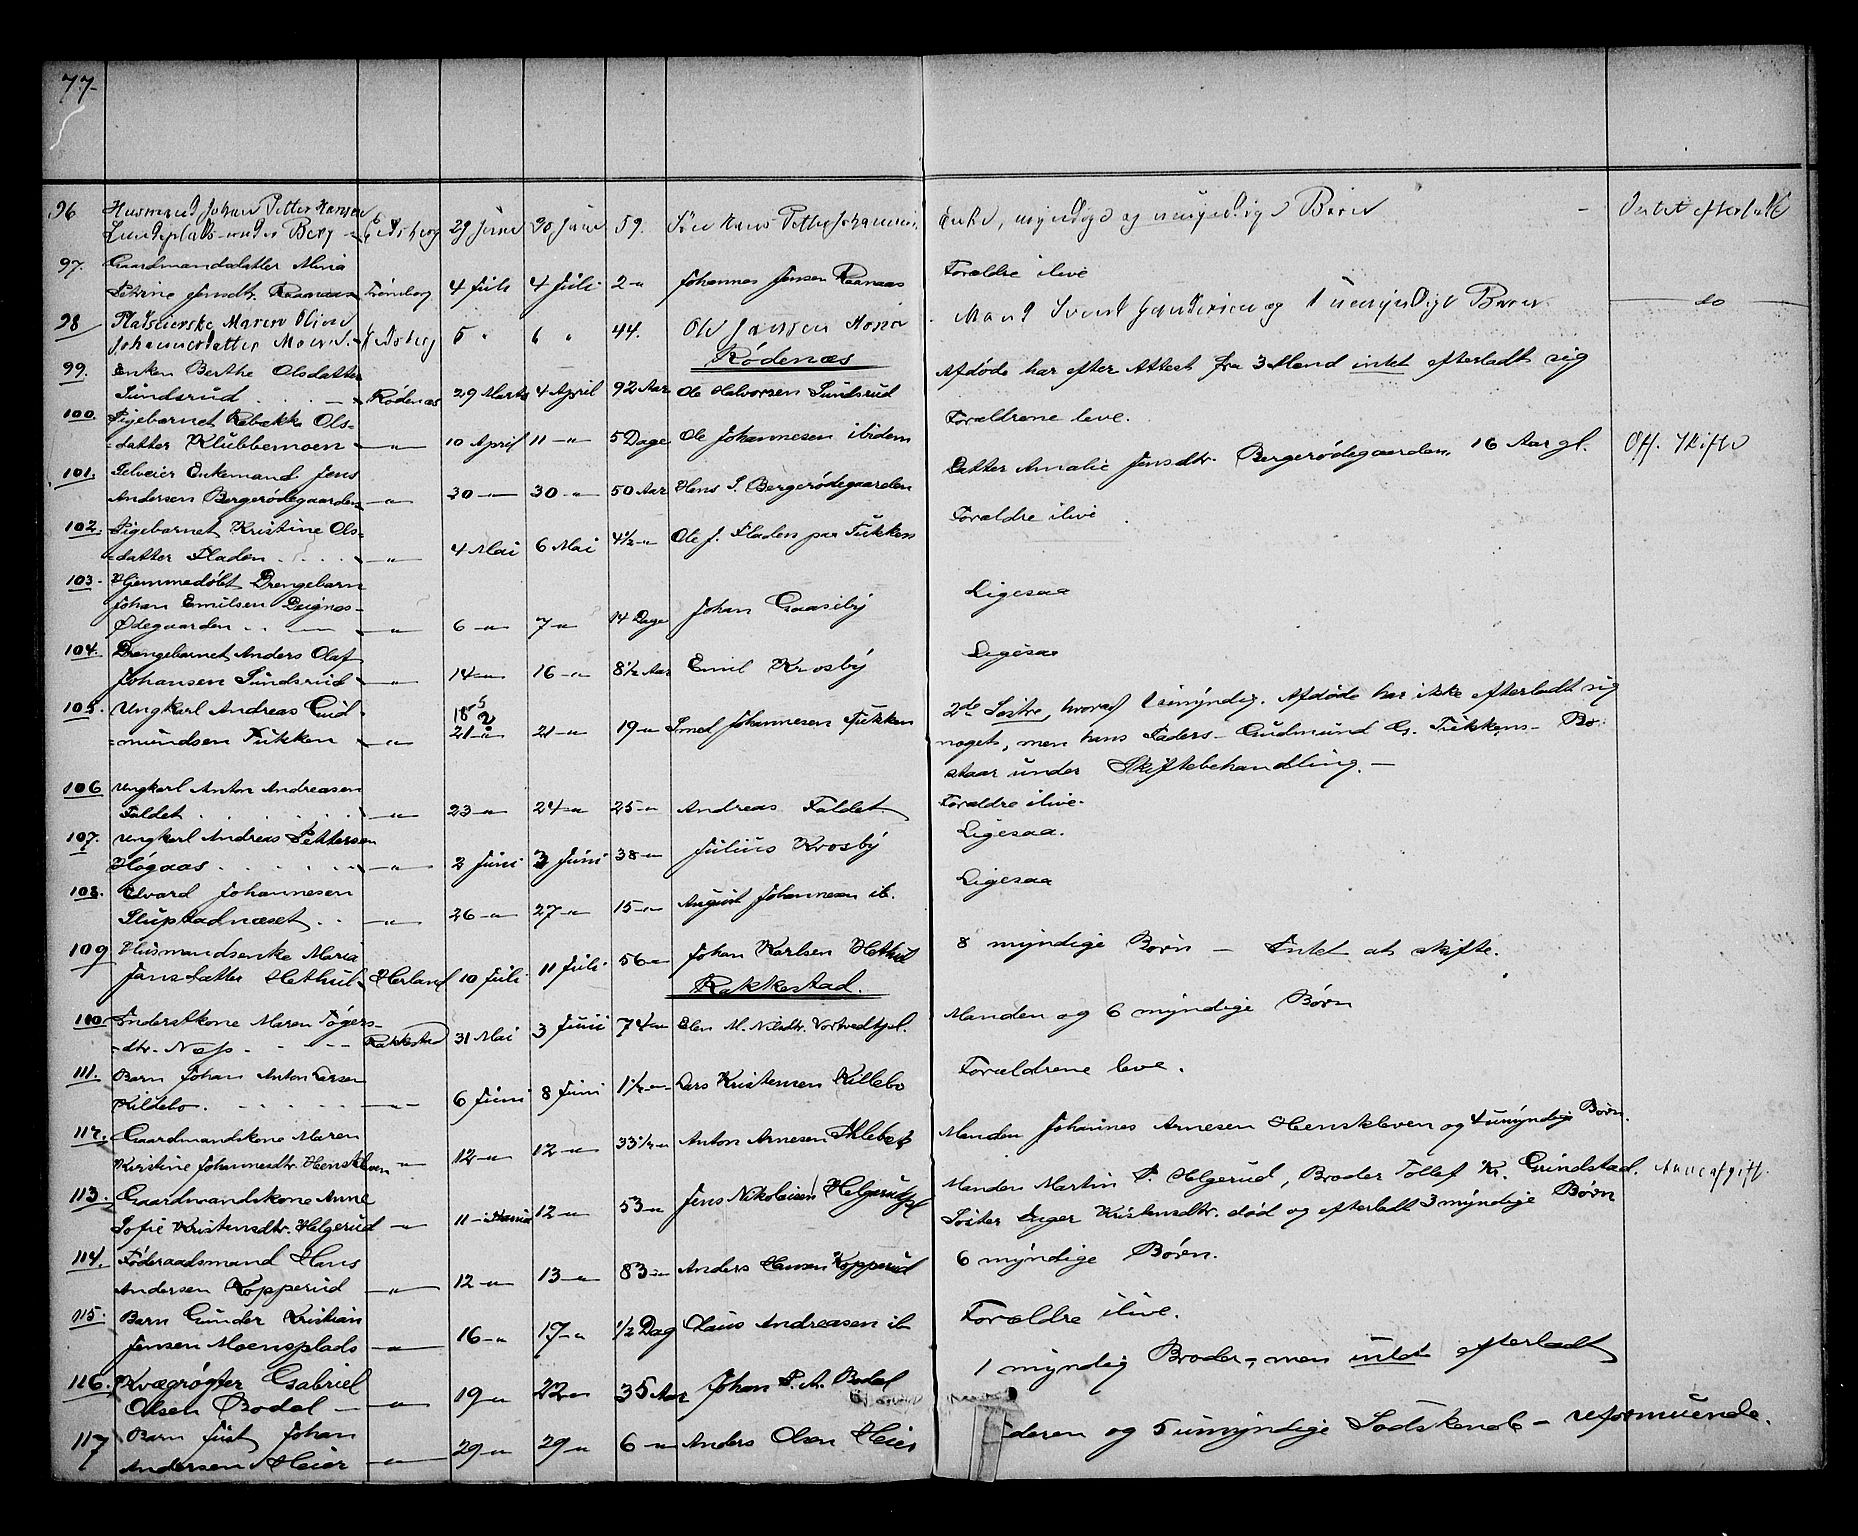 77
96 Husmand Johan Petter Hansen
Lundeplads under Berg - Eidsberg 29 Juni 30 Juni 59. Hans Petter Johannesen Enke, myndige og umyndige Børn - Intet efterladt
97. Gaardmandsdatter Mina
Petrine Jensdtr. Raanaas Trømborg 4 Juli 4 Juli 2 -"- Johannes Jensen Raanaas Forældre ilive
98 Pladseierske Maren Oline
Johannesdatter Eidsberg 5 " 6 " 44. Ole Jansen Mand og 1 umyndigt Barn do
Rødenæs
99. Enken Berthe Olsdatter
Sundsrud . . . - Rødenæs 29 Marts 4 April 92 Aar Ole Halvorsen Sundsrud Afdøde har efter Attest fra 3 Mænd intet efterladt sig
100. Pigebarnet Rebekka Ols-
=datter Klubbemoen - -"- 10 April 11 -"- 5 Dage Ole Johannesen ibidem Forældrene leve.
101. Selveier Enkemand Jens
Andersen Bergerødegaarden -"- 30 -"- 30 -"- 50 Aar Hans S. Bergerødegaarden Datter Amalie Jensdtr. Bergerødegaarden, 16 Aar gl. Off. Skifte
102. Pigebarnet Kristine Ols-
=datter Fladen . . . . -"- 4 Mai 6 Mai 4½ -"- Ole J. Fladen paa Tukken Forældre ilive
103. Hjemmedøbt Drengebarn
Johan Emilsen
Ødegaarden . . -"- 6 -"- 7 -"- 14 Dage Johan Gaaseby Ligesaa
104. Drengebarnet Anders Olaf
Johansen Sundsrud -"- 14 -"- 16 -"- 8½ Aar Emil Krosby Ligesaa
105. Ungkarl Andreas Gud-
=mundsen Tukken -"- 21 -"- 21 -"- 19 -"- Johannesen Tukken 2de Søstre, hvoraf 1 umyndig. Afdøde har ikke efterladt sig
noget, men hans Faders - Gudmund G. Tukkens - Bo
staar under Skiftebehandling. -
106 Ungkarl Anton Andreasen
Faldet . . . . . . -"- 23 -"- 24 -"- 25 -"- Andreas Faldet. Forældre ilive.
107. Ungkarl Andreas Pettersen
Høgaas . . . . . . -"- 2 Juni 3 Juni 38 -"- Julius Krosby Ligesaa.
108. Edvard Johannesen
Slupstadnæset . . -"- 26 -"- 27 -"- 15 -"- August Johannesen ib. Ligesaa
109 Husmandsenke Maria
Jansdatter Hethul Herland 10 Juli 11 Juli 56 -"- Johan Karlsen Hethul 8 myndige Børn - Intet at skifte.
Rakkestad.
110. Inderstkone Maren
=dtr. Næs . - - - - Rakkestad 31 Mai 3 Juni 74 -"- Elen M. Nilsdtr. Manden og 6 myndige Børn
111. Barn Johan Anton Larsen
Kildebo. - - - - -"- 6 Juni 8 Juni 1½ -"- Lars Kristensen Killebo Forældrene leve.
112. Gaardmandskone Maren
Kristine Johannesdtr. Henskleven -"- 12 -"- 12 -"- 33½ -"- Anton Arnesen Manden Johannes Arnesen Henskleven og 4 umyndige Børn.
113. Gaardmandskone Anne
Sofie Kristensdtr. Helgerud -"- 11 12 -"- 53 -"- Jens Nikolaisen Manden Martin P. Helgerud, Broder Tollef Kr. Grindstad. Arveafgift.
Søster Inger Kristensdtr. død og efterladt 3 myndige Børn
114. Føderaadsmand Hans
Andersen Kopperud -"- 12 -"- 13 -"- 83 -"- Anders Hansen Kopperud 6 myndige Børn.
115. Barn Gunder Kristian
Jensen Moensplads -"- 16 -"- 17 -"- ½ Dag Olaus Andreasen ib Forældre ilive.
116. Kvægrøgter Gabriel
Olsen Bodal - -"- 19 -"- 22 -"- 35 Aar Johan P. A. Bodal 1 myndig Broder, men intet efterladt
117 Barn Just Johan
Andersen Heier -"- 29 -"- 29 -"- 6 -"- Anders Olsen Heier deren og 5 umyndige Sødskende - uformuende.